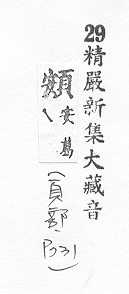 29精嚴新集大藏音
頞安葛
(頁部P331)